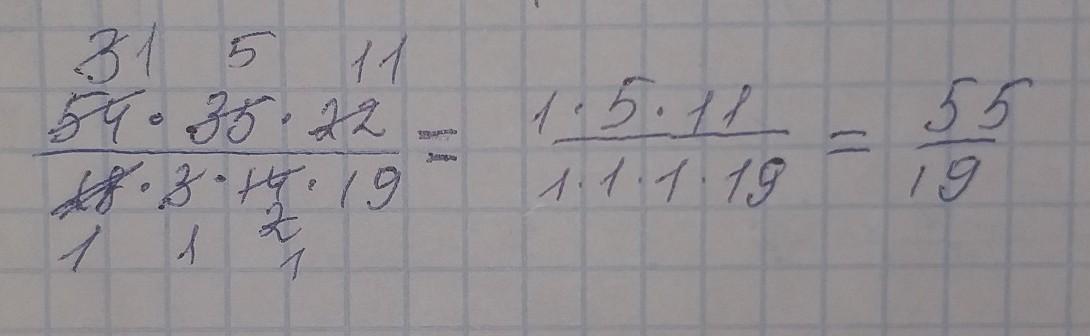 31 5 11
54 · 35 · 22 / 18 · 3 · 14 · 19 = 1 · 5 · 11 / 1 · 1 · 1 · 19 = 55 / 19
2
1 1 1